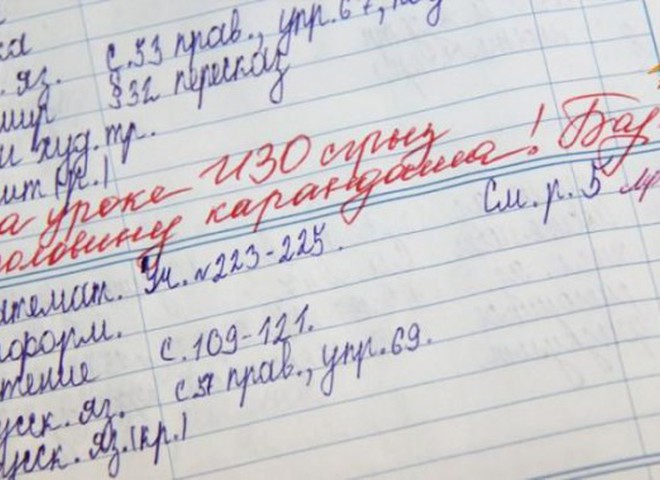 ка
. яз. с.53 прав., упр.67,
мир §32 пересказ
и худ.тр.
(кр.)
а уроке ИЗО сгрыз
половину карандаша! Бар
См. р. 5
атемат. Уч. №223-225.
нформ.
тение с.109-121.
усск. яз. с 57 прав., упр.69.
усск. яз.(кр.)